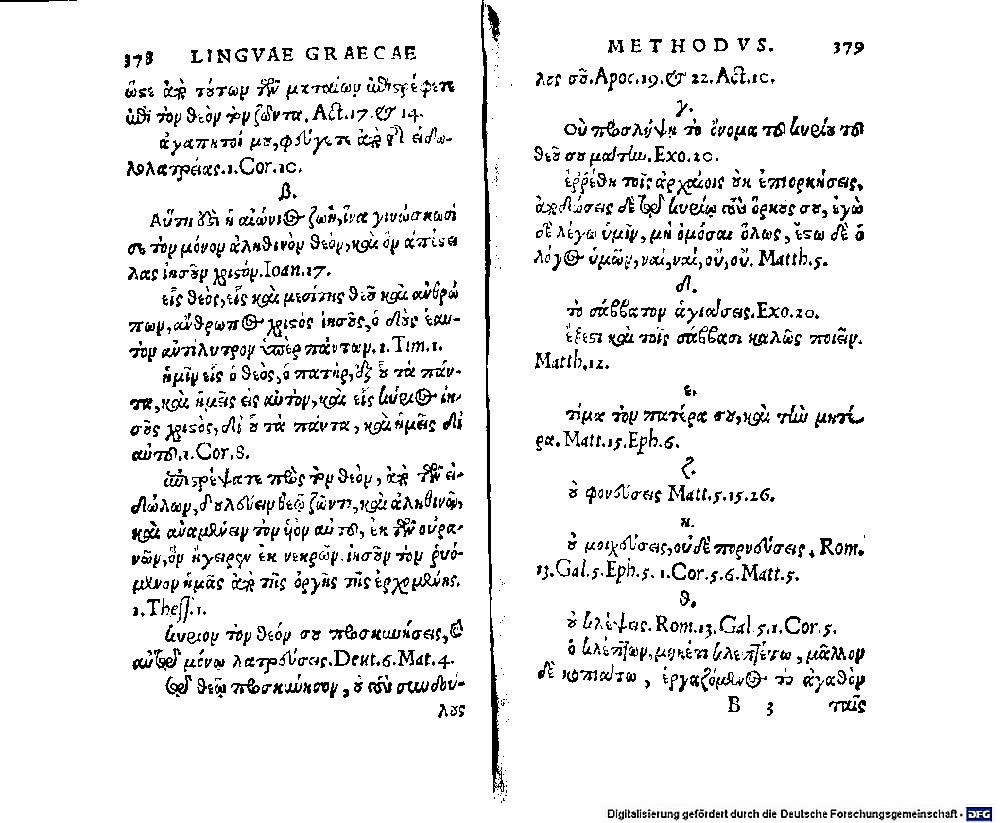 378 LINGVAE GRAECAE
ὥστε ἀπὸ τούτων τῶν ματαίων ἐπιστρέφετε
ἐπὶ τὸν θεὸν τὸν ζῶντα. Act. 17. & 14.
ἀγαπητοί μου, φεύγετε ἀπὸ τῆς εἰδω-
λολατρείας. 1. Cor. 10.
β.
Αὕτη δέ ἐστιν ἡ αἰώνιος ζωὴ, ἵνα γινώσκωσί
σε τὸν μόνον ἀληθινὸν θεὸν, καὶ ὃν ἀπέστει
λας ἰησοῦν χριστόν. Ioan. 17.
εἷς θεὸς, εἷς καὶ μεσίτης θεοῦ καὶ ἀνθρώ
πων, ἄνθρωπος χριστὸς ἰησοῦς, ὁ δοὺς ἑαυ-
τὸν ἀντίλυτρον ὑπὲρ πάντων. 1. Tim. 1.
ἡμῖν εἷς ὁ θεὸς, ὁ πατὴρ, ἐξ οὗ τὰ πάν-
τα, καὶ ἡμεῖς εἰς αὐτὸν, καὶ εἷς κύριος ἰη-
σοῦς χριστὸς, δι οὗ τὰ πάντα, καὶ ἡμεῖς δι
αὐτοῦ. 1. Cor. 8.
ἐπιστρέψατε πρὸς τὸν θεὸν, ἀπὸ τῶν εἰ-
δώλων, δουλεύειν θεῷ ζῶντι, καὶ ἀληθινῷ,
καὶ ἀναμένειν τὸν υἱὸν αὐτοῦ, ἐκ τῶν οὐρα-
νῶν, ὃν ἤγειρεν ἐκ νεκρῶν. ἰησοῦν τὸν ῥυό-
μενον ἡμᾶς ἀπὸ τῆς ὀργῆς τῆς ἐρχομένης.
1. Thess. 1.
κύριον τὸν θεόν σου προσκυνήσεις, καὶ
αὐτῷ μόνῳ λατρεύσεις. Deut. 6. Mat. 4.
τῷ θεῷ προσκύνησον, ὁ τῶν συνδού-
λους
METHODVS. 379
λος σοῦ. Apoc. 19. & 22. Act. 10.
γ.
Οὐ προσλήψῃ τὸ ὄνομα τοῦ κυρίου τοῦ
θεοῦ σου μάτην. Exo. 20.
ἐρρέθη τοῖς ἀρχαίοις οὐκ ἐπιορκήσεις,
ἀποδώσεις δὲ τῷ κυρίῳ τοὺς ὅρκους σου, ἐγὼ
δὲ λέγω ὑμῖν, μὴ ὀμόσαι ὅλως, ἔστω δὲ ὁ
λόγος ὑμῶν, ναὶ, ναὶ, οὔ, οὔ. Matth. 5.
δ.
τὸ σάββατον ἁγιάσεις. Exo. 20.
ἔξεστι καὶ τοῖς σάββασι καλῶς ποιεῖν.
Matth. 12.
ε.
τίμα τὸν πατέρα σου, καὶ τὴν μητέ-
ρα. Matt. 15. Eph. 6.
ζ.
οὐ φονεύσεις Matt. 5. 15. 26.
η.
οὐ μοιχεύσεις, οὐδὲ πορνεύσεις. Rom.
13. Gal. 5. Eph. 5. 1. Cor. 5. 6. Matt. 5.
θ.
οὐ κλέψεις. Rom. 13. Gal. 5. 1. Cor. 5.
ὁ κλέπτων, μηκέτι κλεπτέτω, μᾶλλον
δὲ κοπιάτω, ἐργαζόμενος τὸ ἀγαθὸν
B 3 ταῖς
Digitalisierung gefördert durch die Deutsche Forschungsgemeinschaft - DFG